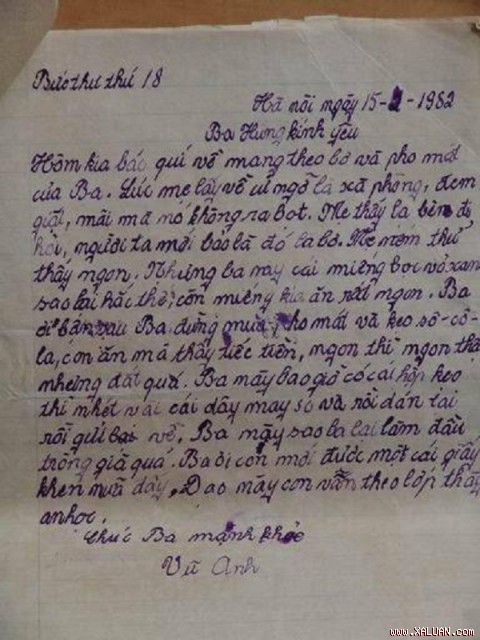 Bức thư thứ 18
Hà nội ngày 15-2-1982
Ba Hưng kính yêu
Hôm kia bác quí về mang theo bơ và pho mát
của Ba. Lúc mẹ lấy về cứ ngỡ là xà phòng, đem
giặt, mãi mà nó không ra bọt. Mẹ thấy lạ bèn đi
hỏi, người ta mới bảo là đó là bơ. Mẹ nếm thử
thấy ngon. Nhưng ba này cái miếng bọc vỏ xanh
sao lại hắc thế, còn miếng kia ăn rất ngon. Ba
ơi lần sau Ba đừng mua pho mát và kẹo sô-cô-
la, con ăn mà thấy tiếc tiền, ngon thì ngon thật
nhưng đắt quá. Ba này bao giờ có cái hộp kẹo
thì nhét vài cái dây may so và rồi dán lại
rồi gửi về. Ba này sao ba lại làm đầu
trông già quá. Ba ơi con mới được một cái giấy
khen nữa đấy. Dạo này con vẫn theo lớp thầy
anhoc.
Chúc Ba mạnh khỏe
Vũ Anh
www.XALUAN.com